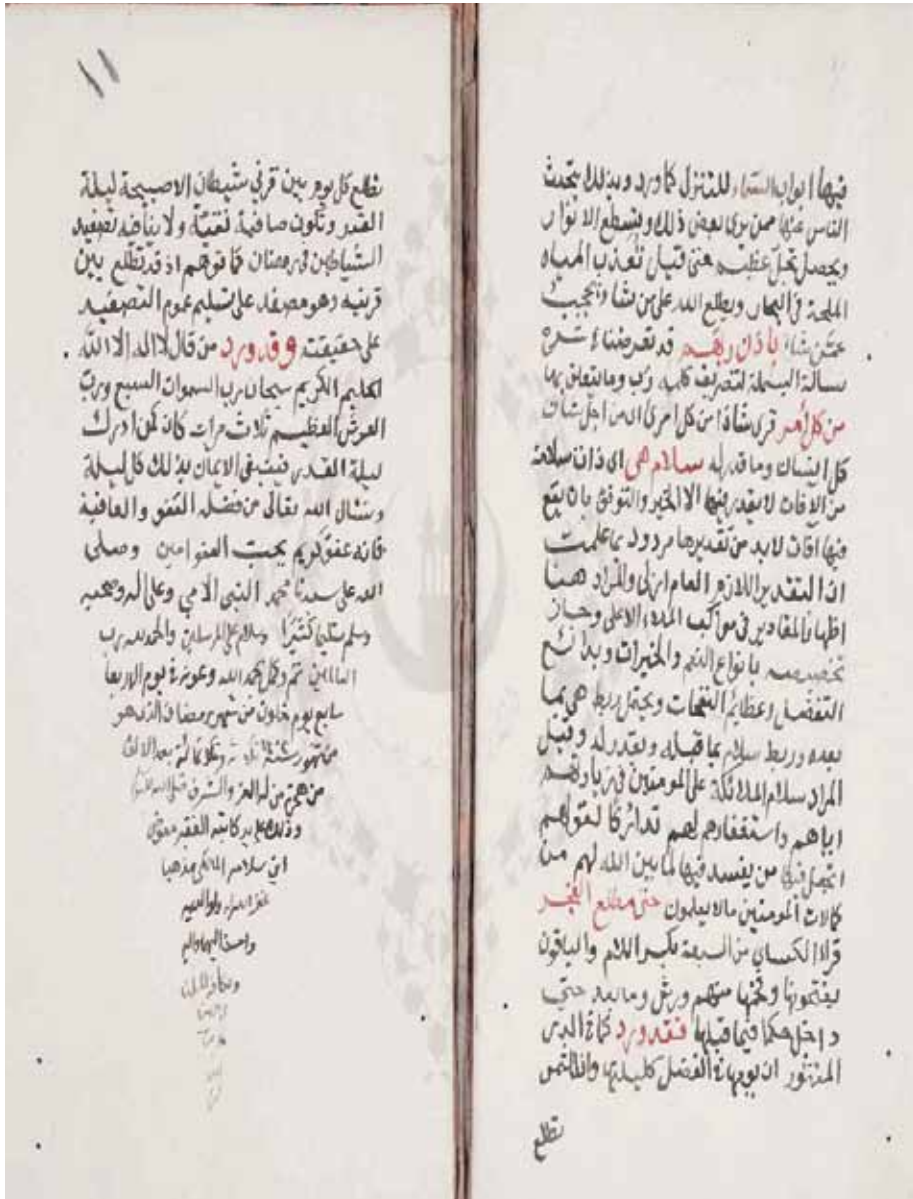 فيها ابواب السماء للتنزل كما ورد وبذلك يتحدث
الناس عنها ممن يرى بعض ذلك ويسطع الانوار
ويحصل تجل عظيم حتى قيل تعذب المياه
الملحة في البحار ويطلع الله على من شاء ويحجب
عمن شاء باذن ربهم قد تعرضنا في
رسالة البسملة لتصريف كلمة رب وما يتعلق بها
من كل امر قرى شاذا من كل امرئ اي من اجل شان
كل انسان وما قدر له سلام هي اي ذات سلامة
من الافات لا يقدر فيها الا الخير والتوفيق بان يقع
فيها آفات لا بد من تقديرها مردود بما علمت
ان التقدير اللازم العام ازلي والمراد هنا
اظهار المقادير في مواكب الملاء الاعلى وجاز
تخصيصه بانواع النعم والخيرات وبدائع
التفضل وعظائم النفحات ويحتمل ربط هي بما
بعده وربط سلام بما قبله وبعد رله وقيل
المراد سلام الملائكة على المومنين في زيارتهم
اياهم واستغفارهم لهم تداركا لقولهم
اتجعل فيها من يفسد فيها لما بين الله لهم من
كمالات المومنين مالا يعلمون حتى مطلع الفجر
قراءة الكساي من السبعة بكسر اللام والباقون
يفتحونها وفخمها منهم ورش وما بعد حتى
داخل حكما فيما قبلها فقد ورد كما في الدر
المنثور ان يومها في الفضل كليلتها وان الشمس
تطلع
١١
تطلع كل يوم بين قرني شيطان الا صبيحة ليلة
القدر وتكون صافية نقية ولا ينافيه تصفيد
الشياطين في رمضان كما توهم اذ قد تطلع بين
قرنيه وهو مصفد على تسليم عموم التصفيد
على حقيقته وقد ورد من قال لا اله الا الله
الحليم الكريم سبحان رب السموات السبع ورب
العرش العظيم ثلاث مرات كان كمن ادرك
ليلة القدر فينبغي الايمان بذلك كل ليلة
ونسال الله تعالى من فضله العفو والعافية
فانه عفو كريم يحب العفو امين وصلى
الله على سيدنا محمد النبي الامي وعلى اله وصحبه
وسلم تسليما كثيرا وسلام على المرسلين والحمد لله رب
العالمين تم وكمل بحمد الله وعونه في يوم الاربعا
سابع يوم خلون من شهر رمضان الذي هو
من شهور سنة وثلاثمائة بعد الالف
من هجرة من له العز والشرف صلى الله عليه
وذلك على يد كاتبه الفقير معوض
ابن سلامه المالكي مذهبا
غفر الله له ولوالديه
واحسن اليهما واليه